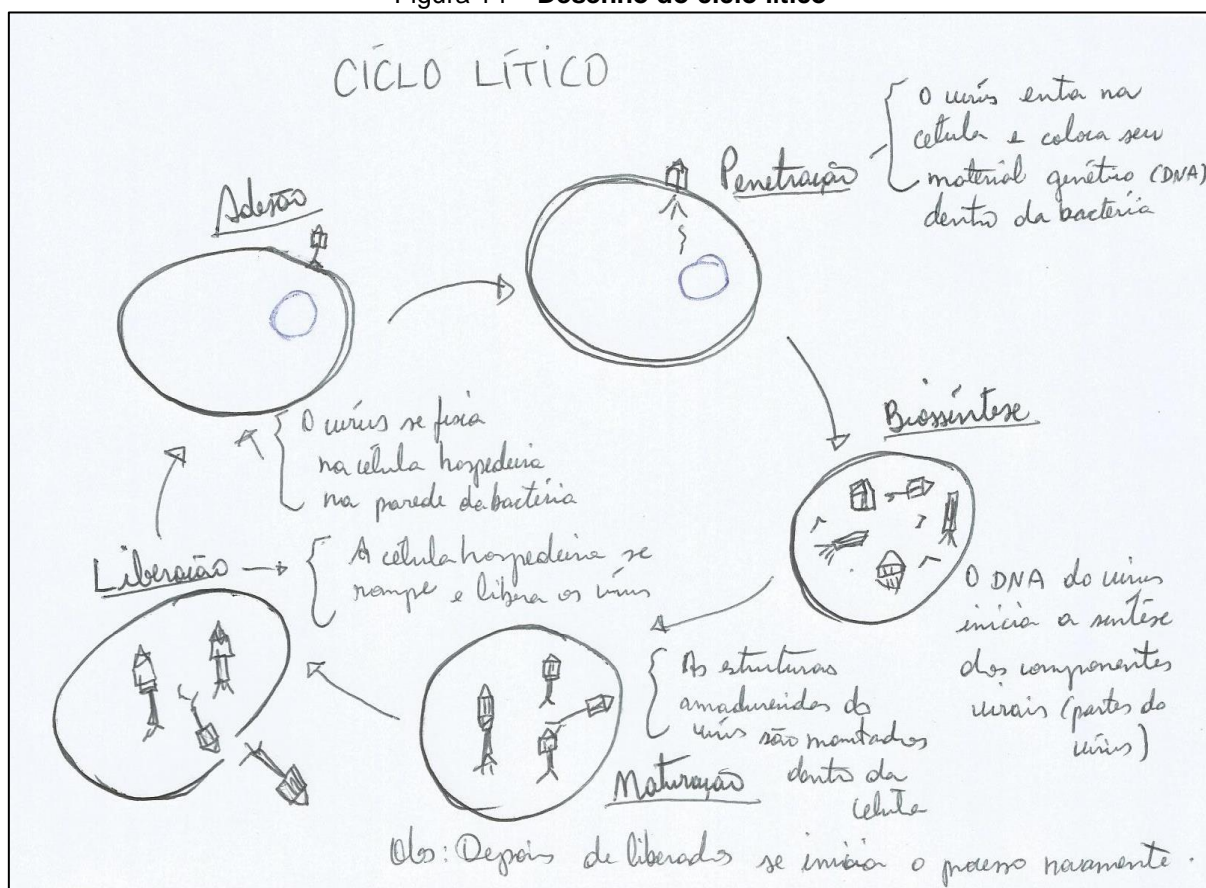 Figura 14 – Desenho do ciclo lítico
CICLO LÍTICO
Adesão
O vírus se fixa
na célula hospedeira
na parede da bactéria
Penetração
O vírus enta na
celula e coloca seu
material genético (DNA)
dentro da bactéria
Biossíntese
O DNA do vírus
inicia a sintese
dos componentes
virais (partes do
vírus)
Maturação
As estruturas
amadurecidas do
vírus são montados
dentro da
celula
Liberação
A célula hospedeira se
rompe e libera os vírus
Obs: Depois de liberados se inicia o processo novamente.